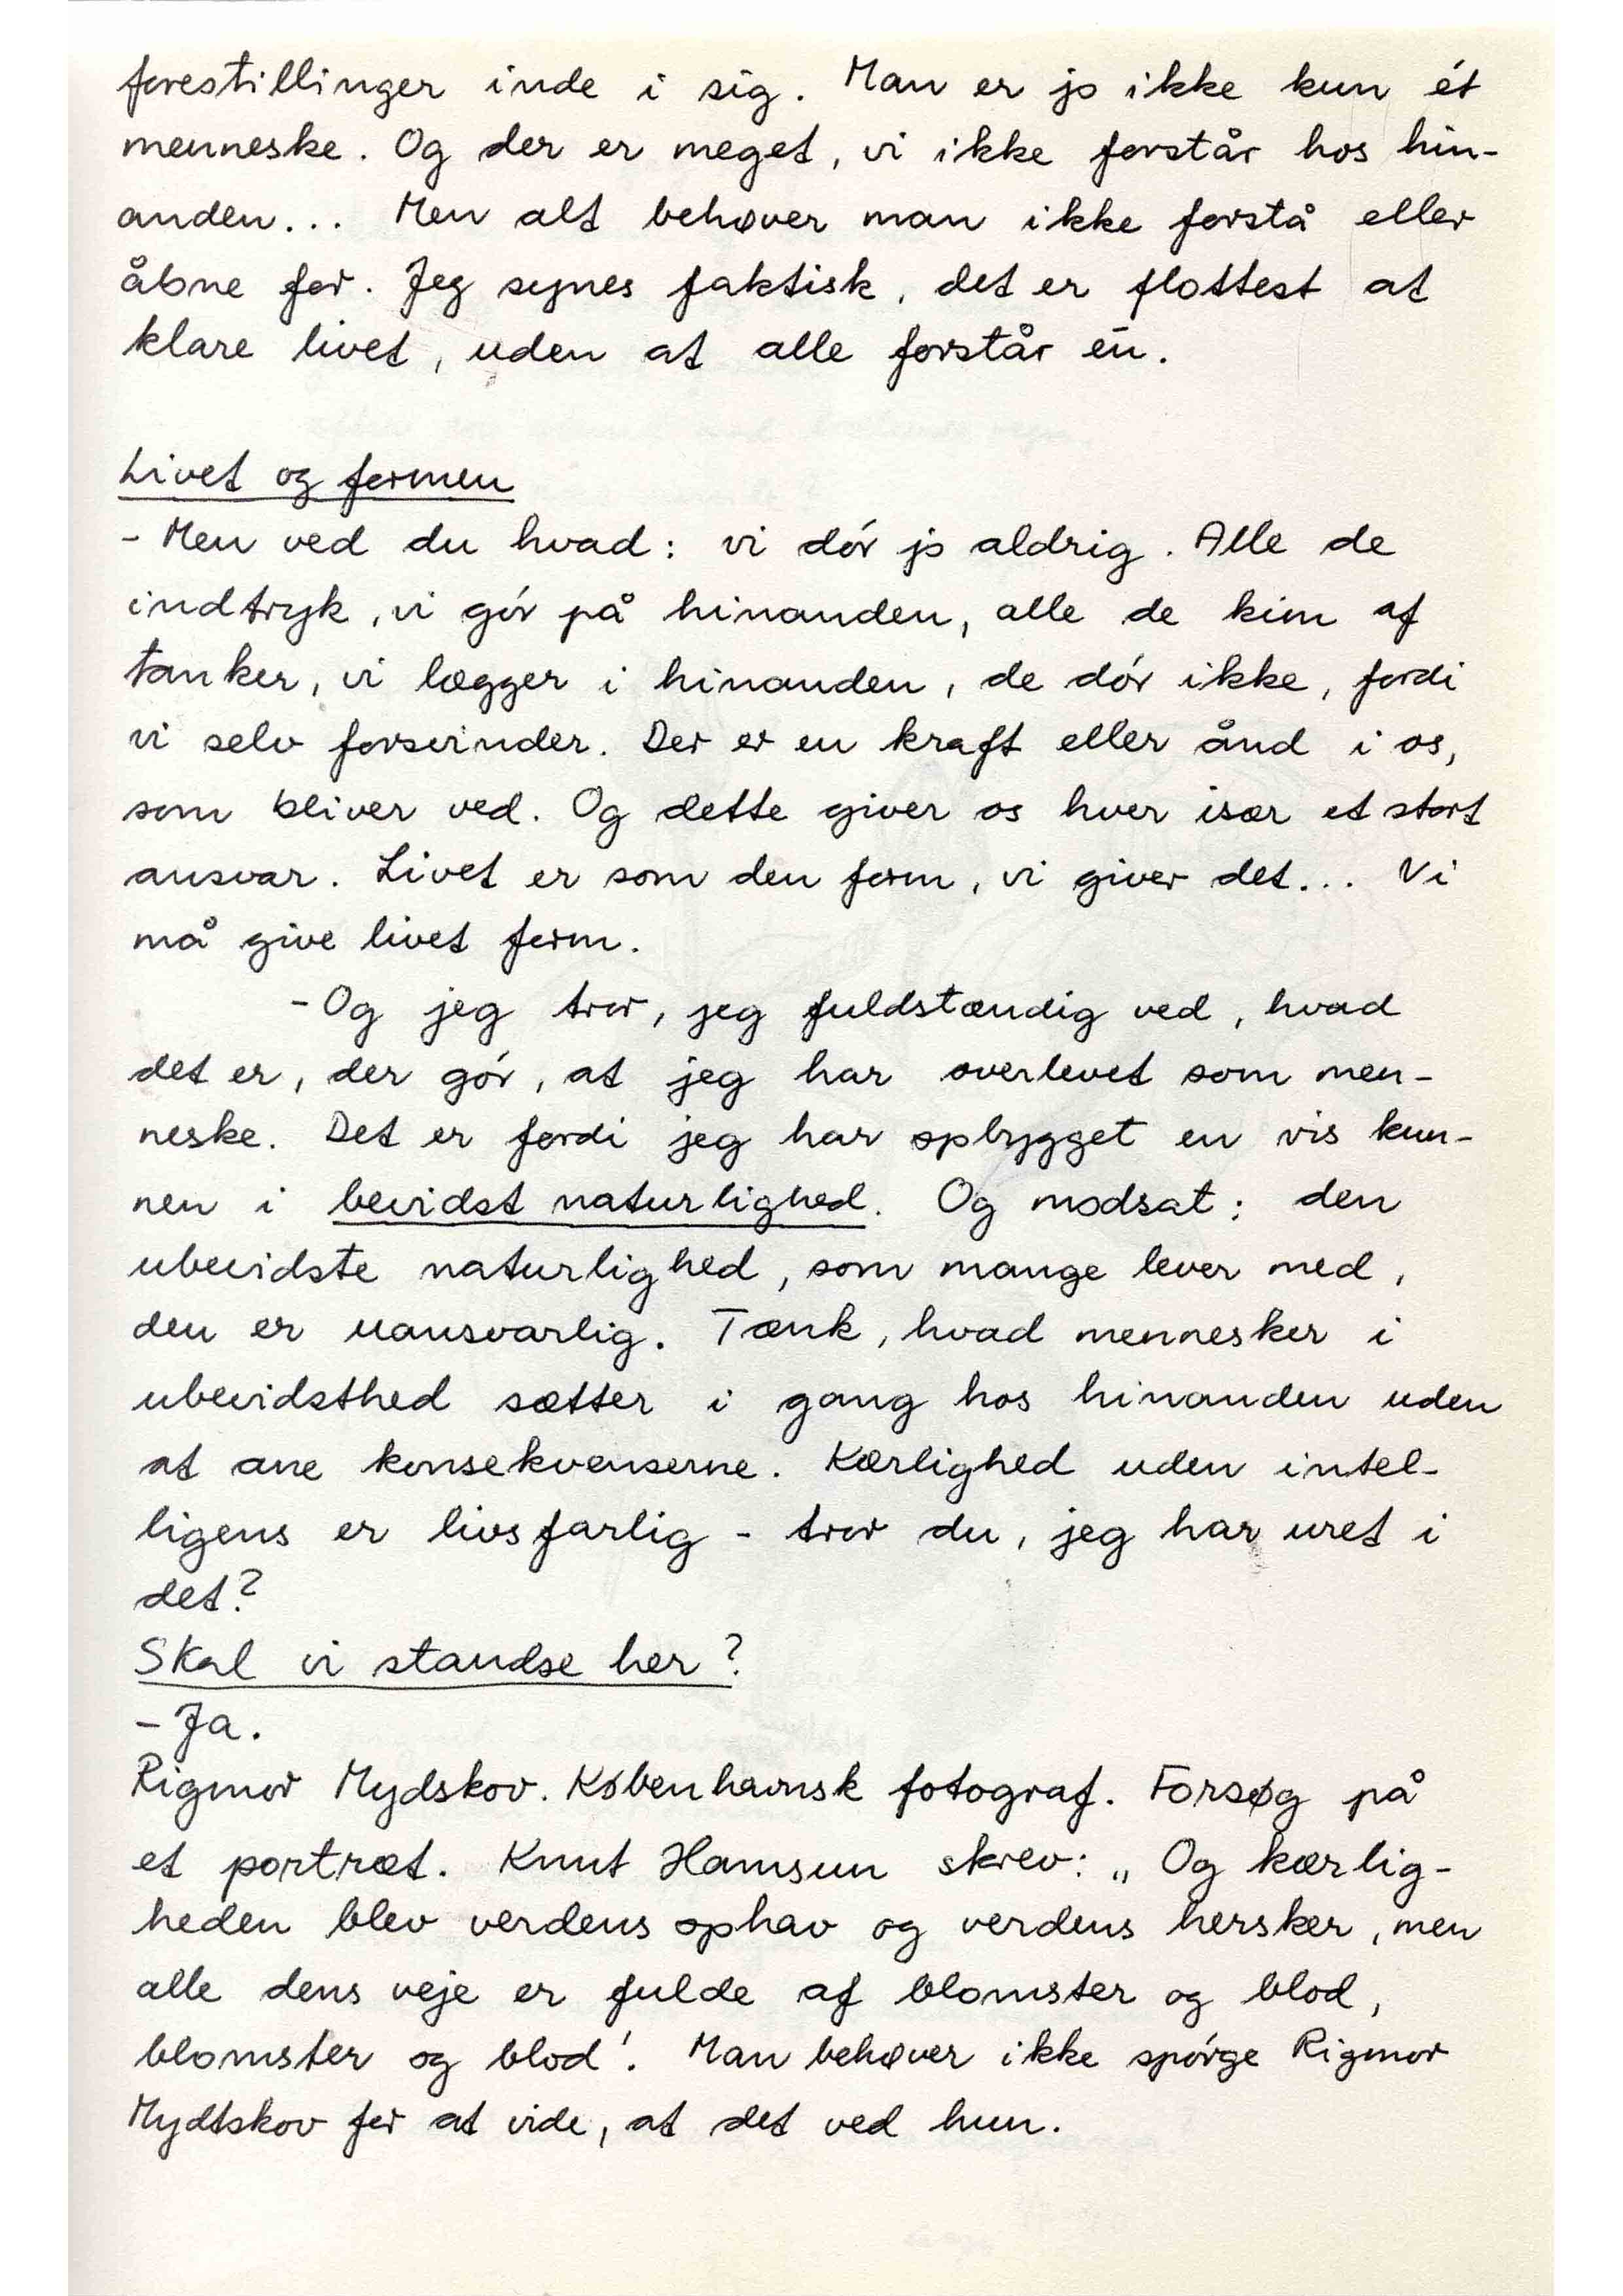 forestillinger inde i sig. Man er jo ikke kun ét
menneske. Og der er meget, vi ikke forstår hos hin-
anden... Men alt behøver man ikke forstå eller
åbne for. Jeg synes faktisk, det er flottest at
klare livet, uden at alle forstår én.
Livet og formen
- Men ved du hvad: vi dør jo aldrig. Alle de
indtryk, vi gør på hinanden, alle de kim af
tanker, vi lægger i hinanden, de dør ikke, fordi
vi selv forsvinder. Der er en kraft eller ånd i os,
som bliver ved. Og dette giver os hver især et stort
ansvar. Livet er som den form, vi giver det... Vi
må give livet form.
- Og jeg tror, jeg fuldstændig ved, hvad
det er, der gør, at jeg har overlevet som men-
neske. Det er fordi jeg har opbygget en vis kun-
nen i bevidst naturlighed. Og modsat: den
ubevidste naturlighed, som mange lever med,
den er uansvarlig. Tænk, hvad mennesker i
ubevidsthed sætter i gang hos hinanden uden
at ane konsekvenserne. Kærlighed uden intel-
ligens er livsfarlig - tror du, jeg har uret i
det?
Skal vi standse her?
- Ja.
Rigmor Mydskov. Københavnsk fotograf. Forsøg på
et portræt. Knut Hamsun skrev: „Og kærlig-
heden blev verdens ophav og verdens hersker, men
alle dens veje er fulde af blomster og blod,
blomster og blod'. Man behøver ikke spørge Rigmor
Mydtskov for at vide, at det ved hun.